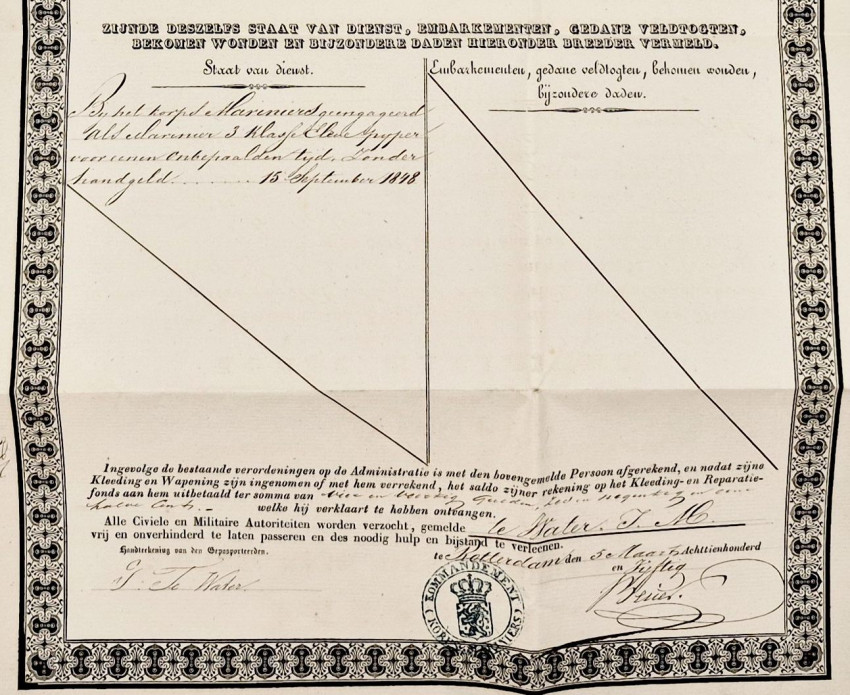 ZIJNDE DESZELFS STAAT VAN DIENST, EMBARKEMENTEN, GEDANE VELDTOGTEN,
BEKOMEN WONDEN EN BIJZONDERE DADEN HIERONDER BREEDER VERMELD.
Staat van dienst.
By het korps Mariniers geengageerd
als Marinier 3 Klasse Eleve Pyper
voor eenen onbepaalden tijd. Zonder
handgeld 15 September 1848
Embarkementen, gedane veldtogten, bekomen wonden,
bijzondere daden.
Ingevolge de bestaande verordeningen op de Administratie is met den bovengemelde Persoon afgerekend, en nadat zijne
Kleeding en Wapening zijn ingenomen of met hem verrekend, het saldo zijner rekening op het Kleeding- en Reparatie-
fonds aan hem uitbetaald ter somma van en Gulden, een
halve Cent. - welke hij verklaart te hebben ontvangen.
Alle Civiele en Militaire Autoriteiten worden verzocht, gemelde te Water. J. M.
vrij en onverhinderd te laten passeren en des noodig hulp en bijstand te verleenen.
Handteekening van den Gepasporteerden.
J. Te Water
te Rotterdam den 5 Maart Achttienhonderd
en Vijftig
KOMMANDEMENT KORPS MARINIERS